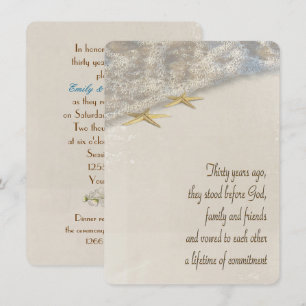 In honor
thirty year
pl
Emily &
as they re
on Saturday
Two thou
at six o'cl
Seas
1255
You
Dinner re
the ceremony
1266
Thirty years ago,
they stood before God,
family and friends
and vowed to each other
a lifetime of commitment